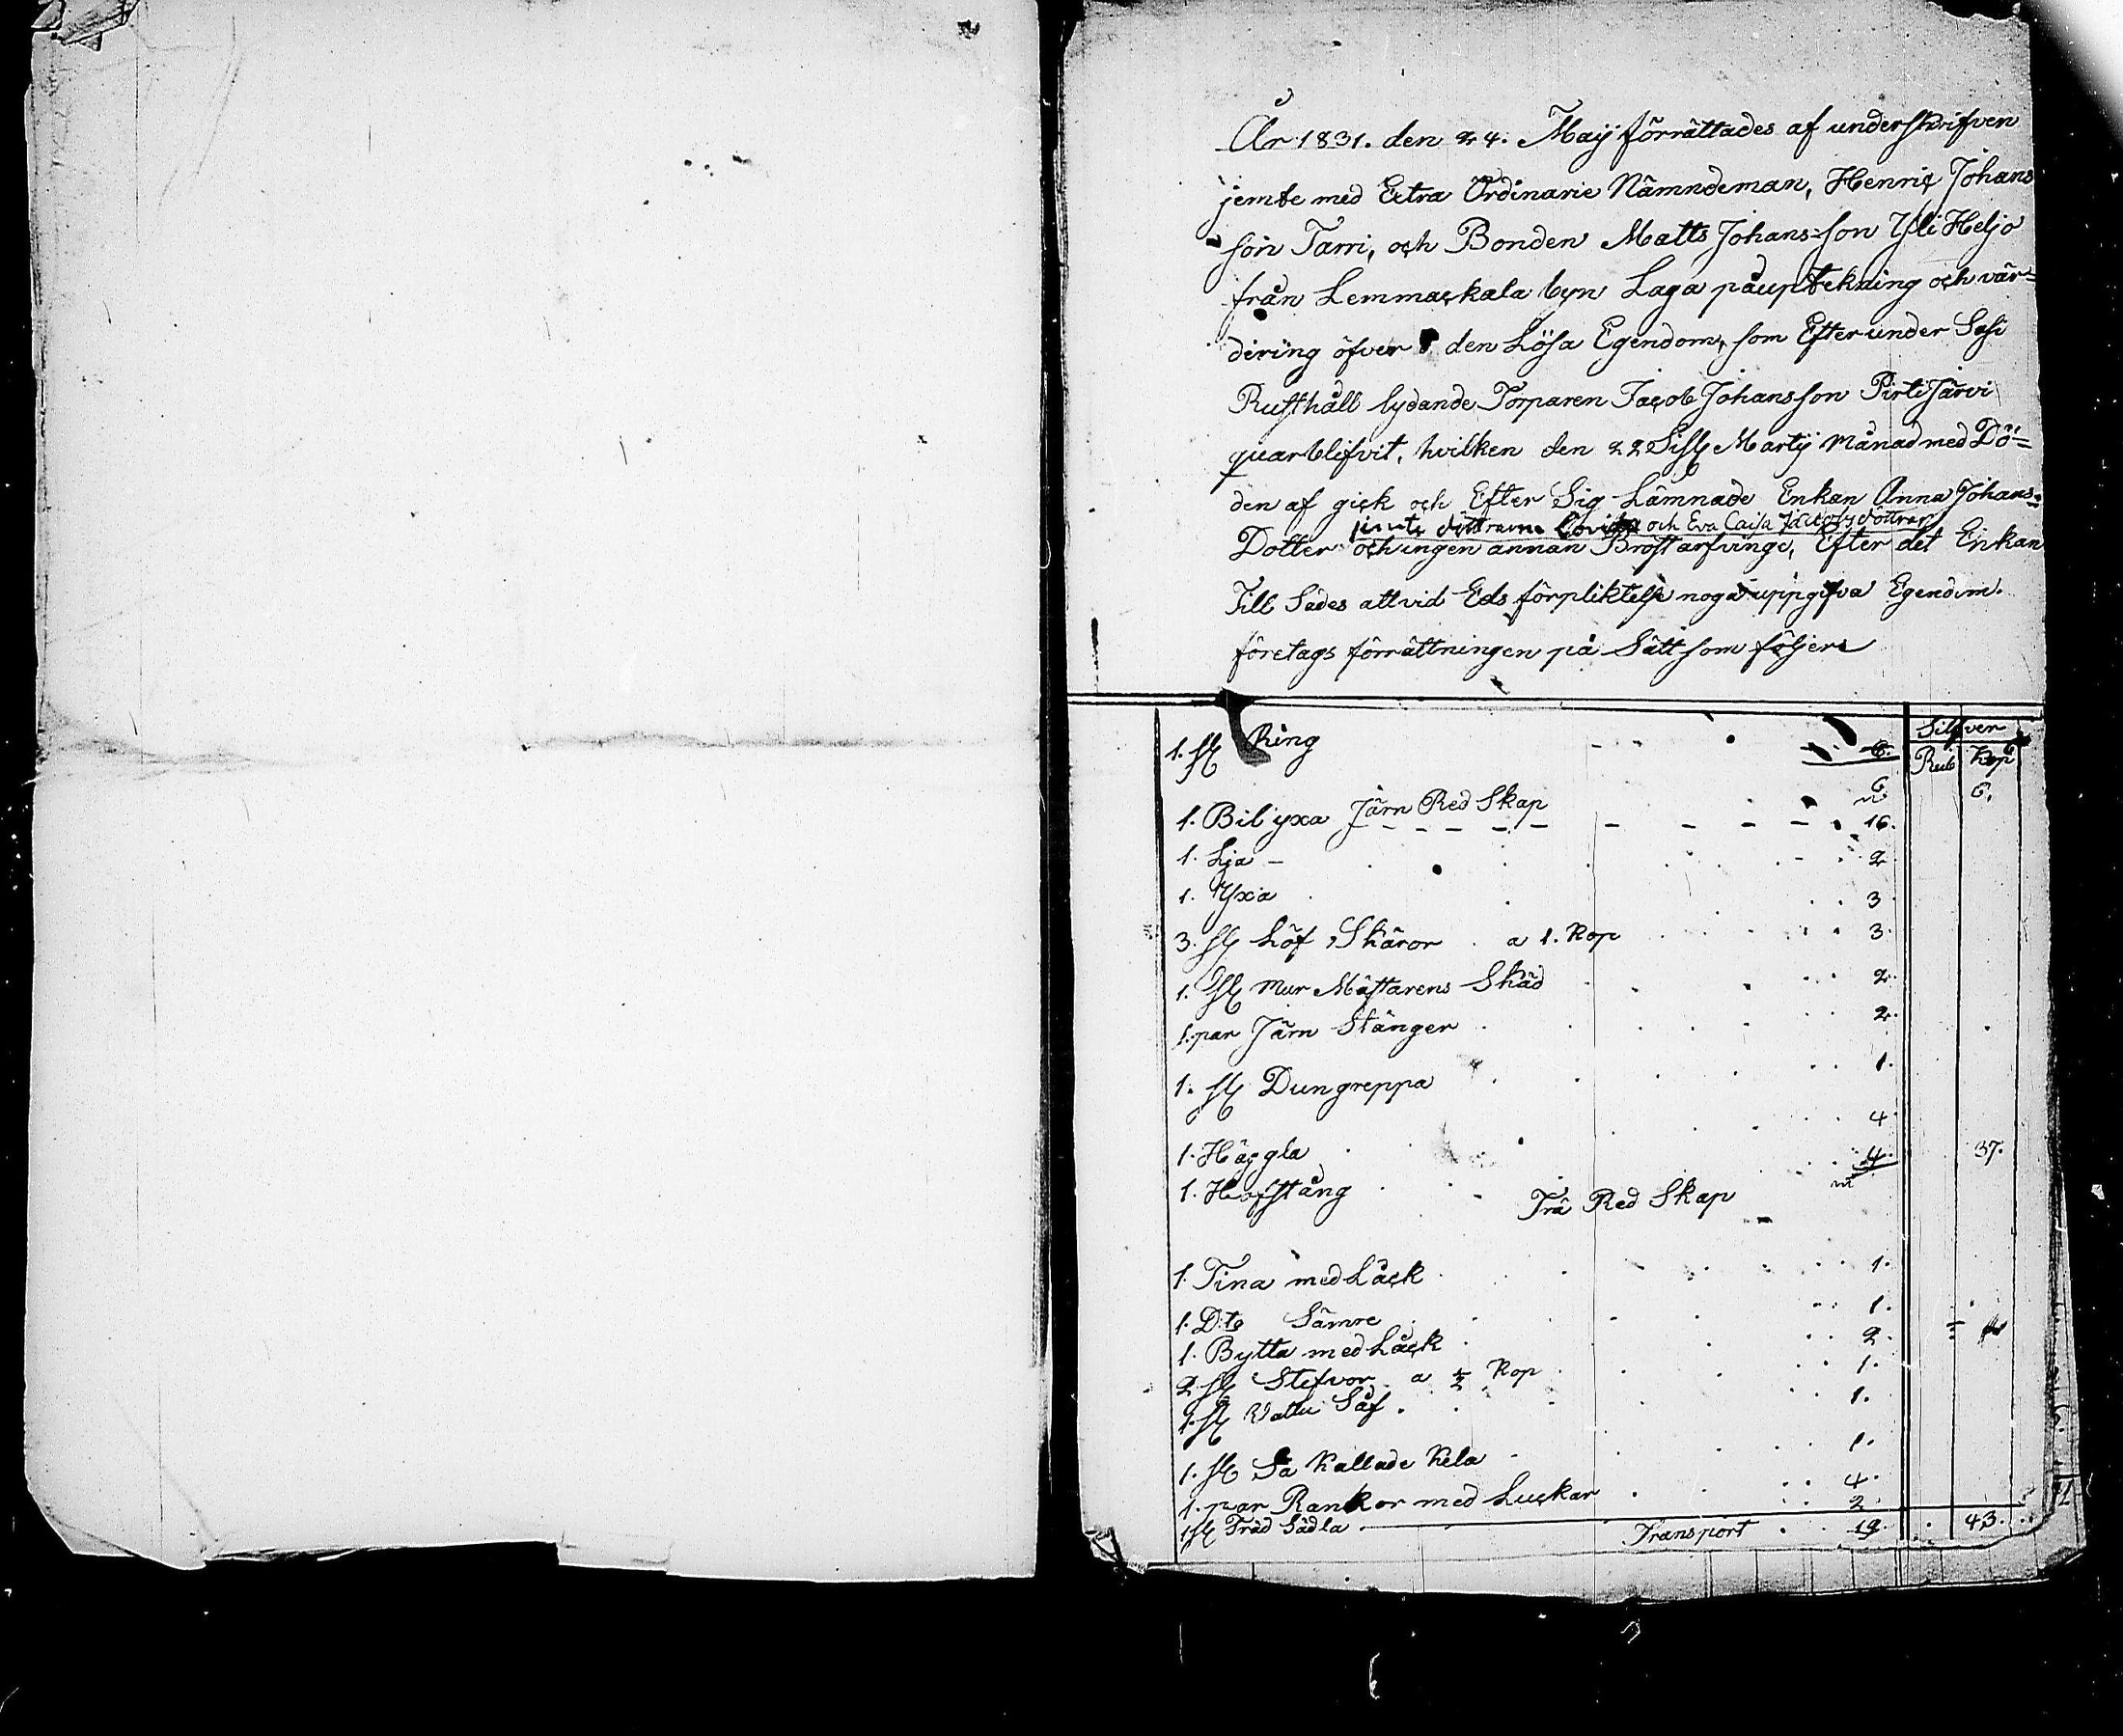 År 1831. den 24. Maij förrättades af underskrifven
jemte med Extra Ordinarie Nämndeman, Henric Johans
son Tarri, och Bonden Matts Johans=son Yli Heljo
från Lemmackala byn Laga påuptekning och vär=
dering öfver den Lösa Egendom, som Efter under Sasi
Rusthåll lydande Torparen Jacob Johansson Pirtijärvi
quarblifvit, hvilken den 22 Sistl Martij Månad med Dö=
den af gick och Efter Sig Lämnade Enkan Anna Johans=
jemte döttrarne Lovisa och Eva Caisa Jacobsdöttrar
Dotter och ingen annan Bröstarfvinge, Efter det Enkan
Till Sades att vid Eds förpliktelse noga uppgifva Egendom.
företags förrättningen på Sätt som följer
Silfver
1. st Ring 6.
Rub Kop
6 6.
Järn Red Skap
1. Bil yxa 16.
1. Lja 2
1. Yxa 3
3. st Löf Skäror a 1. Kop 3
1. st Mur Mästarens Skäd 2.
1. par Järn Stänger 2.
1. st Dungreppa 1.
1. Häggla 4
1. Hofstång 4. 37.
Trä Red Skap
1. Tina med Låck 1.
1. D:to Sämre 1.
1. Bytta med Låck 2.
2 st Stefvor a ½ Kop 1.
1. st Vattu Såf 1.
1. st Så Kallade Kela 1.
1. par Rankor med Luckar 4.
1 st Träd Sådla 2
Transport 12. 43.